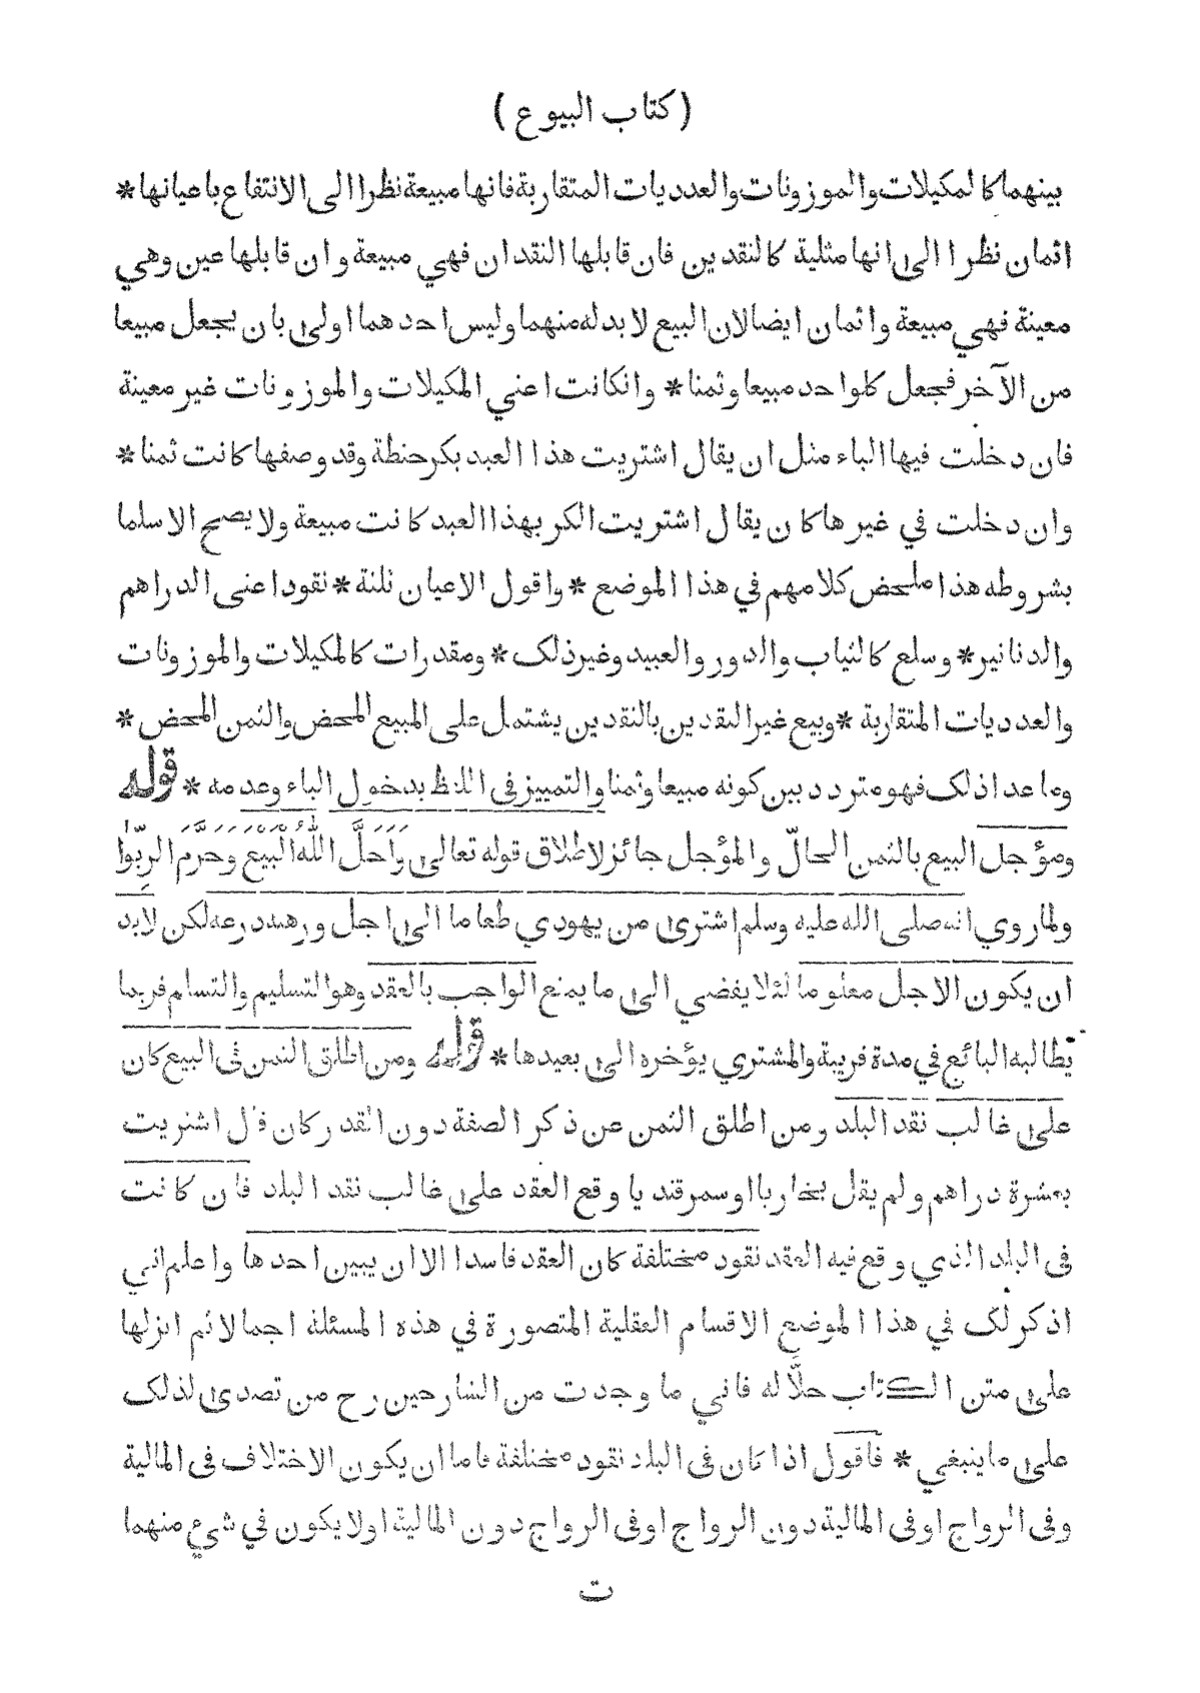 ( كتاب البيوع )
بينهما كالمكيلات والموزونات والعدديات المتقاربة فانها مبيعة نظرا الى الانتفاع باعيانها *
اثمان نظرا الى انها مثلية كالنقدين فان قابلها النقدان فهي مبيعة وان قابلها عين وهي
معينة فهي مبيعة واثمان ايضا لان البيع لا بد له منهما وليس احدهما اولى بان يجعل مبيعا
من الآخر فجعل كلواحد مبيعا وثمنا * وانكانت اعني المكيلات والموزونات غير معينة
فان دخلت فيها الباء مثل ان يقال اشتريت هذا العبد بكر حنطة وقد وصفها كانت ثمنا *
وان دخلت في غيرها كان يقال اشتريت الكر بهذا العبد كانت مبيعة ولا يصح الا سلما
بشروطه هذا ملخص كلامهم في هذا الموضع * واقول الاعيان ثلثة * نقود اعنى الدراهم
والدنانير * وسلع كالثياب والدور والعبيد وغير ذلك * ومقدرات كالمكيلات والموزونات
والعدديات المتقاربة * وبيع غير النقدين بالنقدين يشتمل على المبيع المحض والثمن المحض *
وما عدا ذلك فهو متردد بين كونه مبيعا وثمنا والتمييز فى اللفظ بدخول الباء وعدمه * قوله
ومؤجل البيع بالثمن الحالّ والمؤجل جائز لاطلاق قوله تعالى وَاَحَلَّ اللّٰهُ الْبَيْعَ وَحَرَّمَ الرِّبٰوا
ولما روي انه صلى الله عليه وسلم اشترى من يهودي طعاما الى اجل ورهنه درعه لكن لا بد
ان يكون الاجل معلوما لئلا يفضي الى ما يمنع الواجب بالعقد وهو التسليم والتسلم فربما
يطالبه البائع في مدة قريبة والمشتري يؤخره الى بعيدها * قوله ومن اطلق الثمن فى البيع كان
على غالب نقد البلد ومن اطلق الثمن عن ذكر الصفة دون القدر كان قال اشتريت
بعشرة دراهم ولم يقل بخاريا او سمرقنديا وقع العقد على غالب نقد البلد فان كانت
فى البلد الذي وقع فيه العقد نقود مختلفة كان العقد فاسدا الا ان يبين احدها واعلم اني
اذكر لك في هذا الموضع الاقسام العقلية المتصورة في هذه المسئلة اجمالا ثم انزلها
على متن الكتاب حلًّا له فاني ما وجدت من الشارحين رح من تصدى لذلك
على ما ينبغي * فاقول اذا كان فى البلد نقود مختلفة فاما ان يكون الاختلاف فى المالية
وفى الرواج او فى المالية دون الرواج او فى الرواج دون المالية او لا يكون في شيء منهما
ت